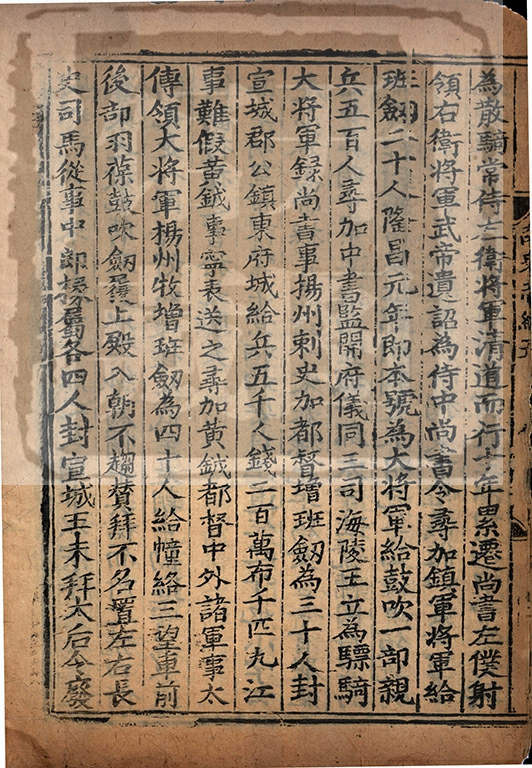 為散騎常侍左衛將軍清道而行十年累遷尚書左僕射
領右衛將軍武帝遺詔為侍中尚書令尋加鎮軍將軍給
班劒二十人隆昌元年即本號為大將軍給鼓吹一部親
兵五百人尋加中書監開府儀同三司海陵王立為驃騎
大將軍録尚書事揚州刺史加都督增班劒為三十人封
宣城郡公鎮東府城給兵五千人錢二百萬布千匹九江
事難假黃鉞事寧表送之尋加黃鉞都督中外諸軍事太
傅領大將軍揚州牧增班劒為四十人給幢絡三望車前
後部羽葆鼓吹劒履上殿入朝不趨賛拜不名置左右長
史司馬從事中郎掾屬各四人封宣城王未拜太后令廢